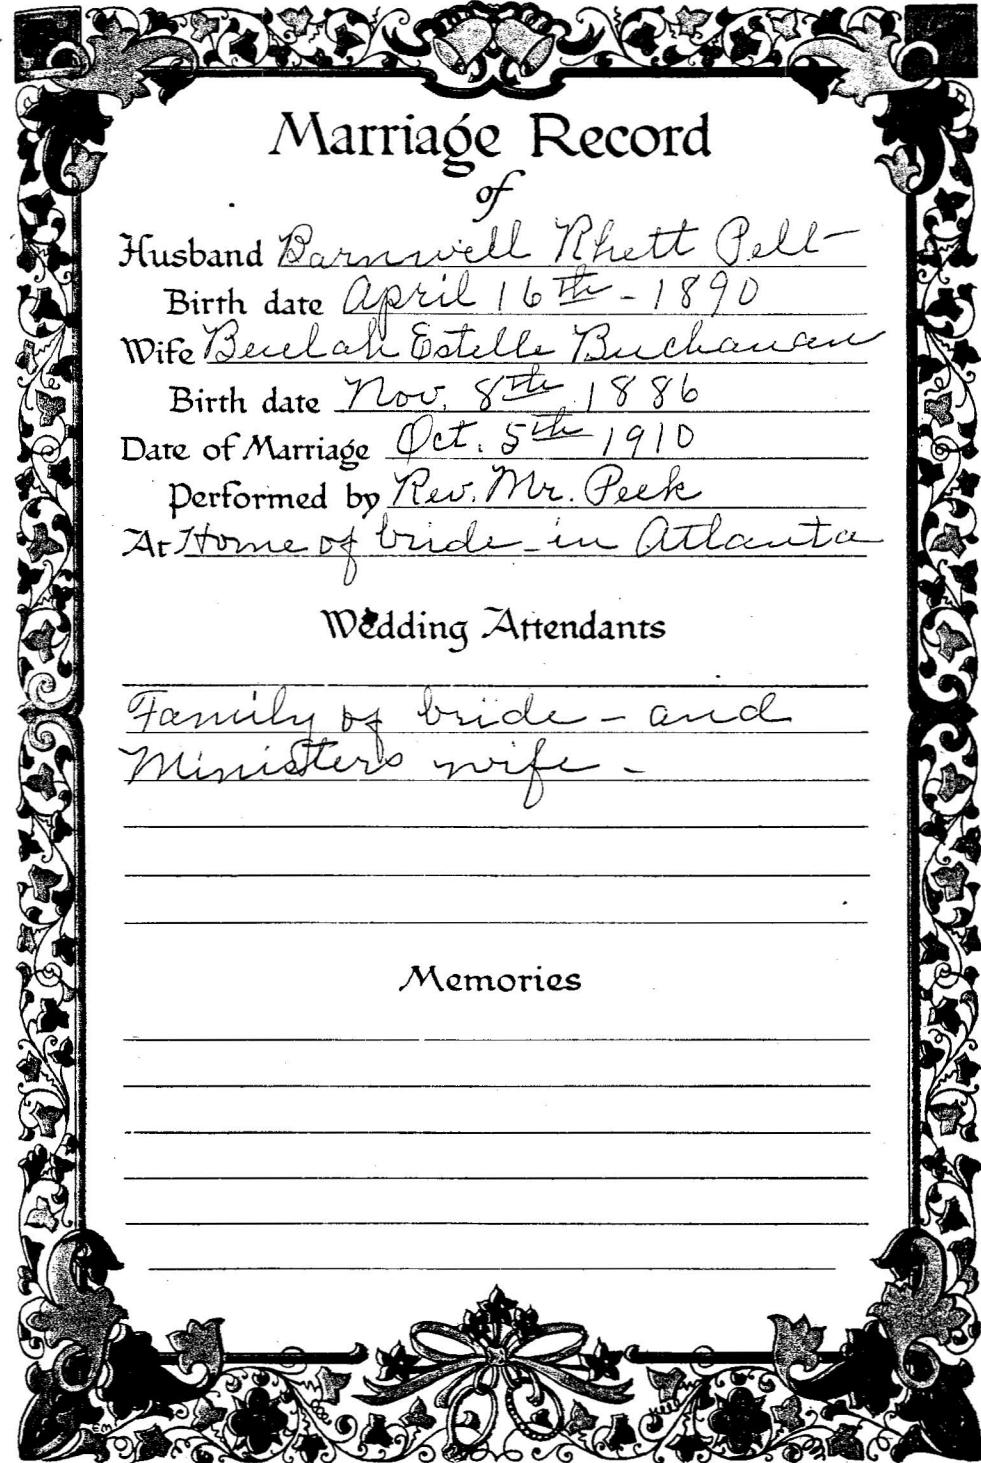 Marriage Record
of
Husband Barnwell Rhett Pelt
Birth date April 16th - 1890
Wife Beulah Estelle Buchanan
Birth date Nov. 8th 1886
Date of Marriage Oct. 5th 1910
Performed by Rev. Mr. Peek
At Home of bride - in Atlanta
Wedding Attendants
Family of bride - and
Ministers wife -
Memories